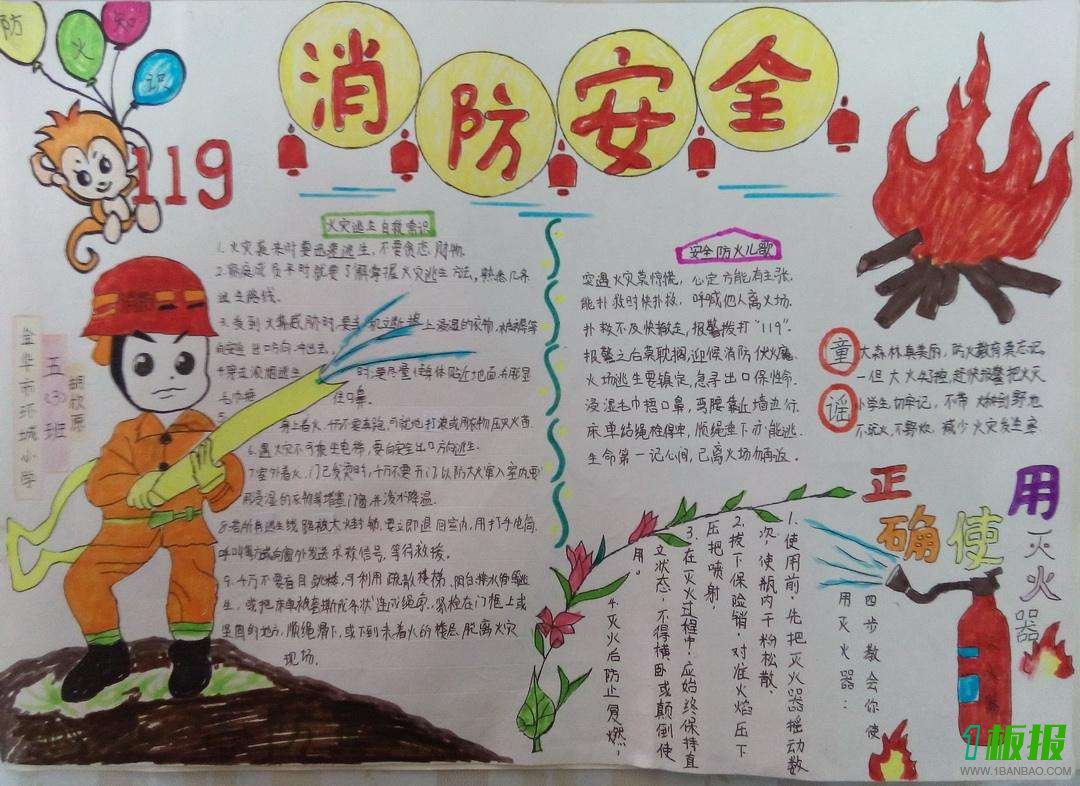 防火知识
119
消防安全
金华市环城小学
五(3)班
胡欣原
火灾逃生自救常识
1.火灾袭来时要迅速逃生,不要贪恋财物。
2.家庭成员平时就要了解掌握火灾逃生方法,熟悉几条
逃生路线。
3.受到火势威胁时,要当机立断披上浸湿的衣物、被褥等
向安全出口方向冲出去。
4.穿过浓烟逃生时,要尽量使身体贴近地面,并用湿
毛巾捂住口鼻。
身上着火,千万不要奔跑,可就地打滚或用衣物压灭火苗。
6.遇火灾不可乘坐电梯,要向安全出口方向逃生。
7.室外着火,门已发烫时,千万不要开门,以防大火窜入室内,要
用浸湿的衣物等堵塞门窗,并泼水降温。
8.若所有逃生线路被大火封锁,要立即退回室内,用打手电筒、
呼叫等方式向窗外发送求救信号,等待救援。
9.千万不要盲目跳楼,可利用疏散楼梯、阳台、排水管等逃
生,或把床单被套撕成条状连成绳索,紧栓在门框上或
坚固的地方,顺绳滑下,或下到未着火的楼层脱离火灾
现场。
安全防火儿歌
突遇火灾莫惊慌,心定方能有主张。
能扑救时快扑救,呼喊他人离火场。
扑救不及快撤走,报警拨打"119"。
报警之后莫耽搁,迎候消防伏火魔。
火场逃生要镇定,急寻出口保性命。
浸湿毛巾捂口鼻,弯腰靠近墙边行。
床单结绳栓得牢,顺绳垂下亦能逃。
生命第一记心间,已离火场勿再返。
童谣
大森林真美丽,防火教育莫忘记。
一但大火
赶快报警把火灭
小学生切牢记,不带火种到野地
不玩火,不野炊,减少火灾发生率
正确使用灭火器
四步教会你使
用灭火器:
1.使用前,先把灭火器摇动数
次,使瓶内干粉松散,
2.拔下保险销,对准火焰压下
压把喷射,
3.在灭火过程中,应始终保持直
立状态,不得横卧或颠倒使
用。
4.灭火后防止复燃,
1板报
WWW.1BANBAO.COM